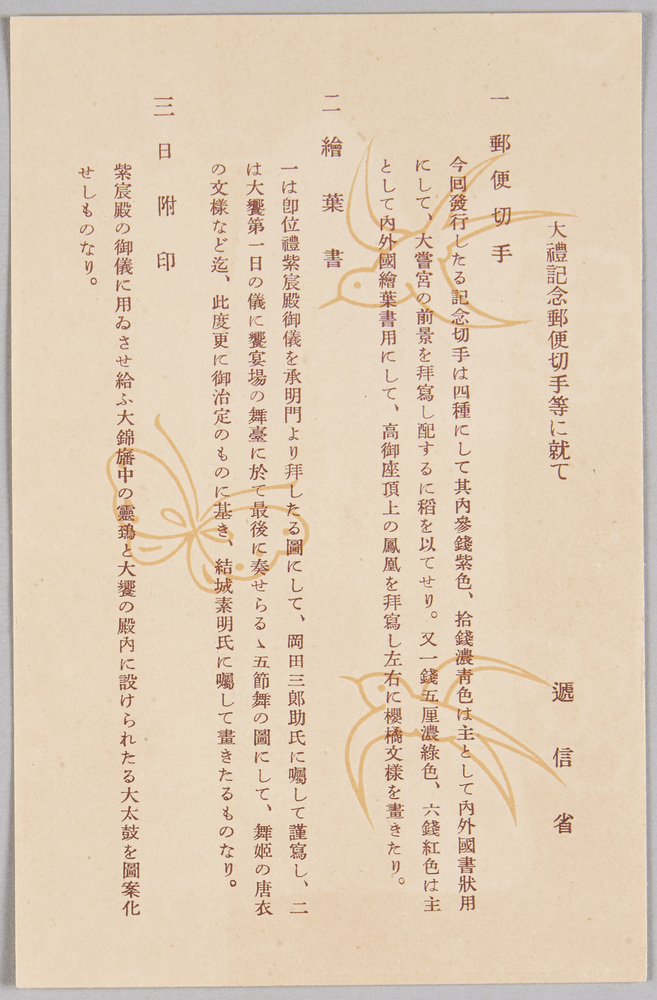 大禮記念郵便切手等に就て
遞信省
一 郵便切手
今回發行したる記念切手は四種にして其內參錢紫色、拾錢濃靑色は主として內外國書狀用
にして、大嘗宮の前景を拜寫し配するに稻を以てせり。又一錢五厘濃綠色、六錢紅色は主
として內外國繪葉書用にして、高御座頂上の鳳凰を拜寫し左右に櫻橘文樣を畫きたり。
二 繪葉書
一は卽位禮紫宸殿御儀を承明門より拜したる圖にして、岡田三郞助氏に囑して謹寫し、二
は大饗第一日の儀に饗宴場の舞臺に於て最後に奏せらるゝ五節舞の圖にして、舞姬の唐衣
の文樣など迄、此度更に御治定のものに基き、結城素明氏に囑して畫きたるものなり。
三 日附印
紫宸殿の御儀に用ゐさせ給ふ大錦旛中の靈鵄と大饗の殿內に設けられたる大太鼓を圖案化
せしものなり。